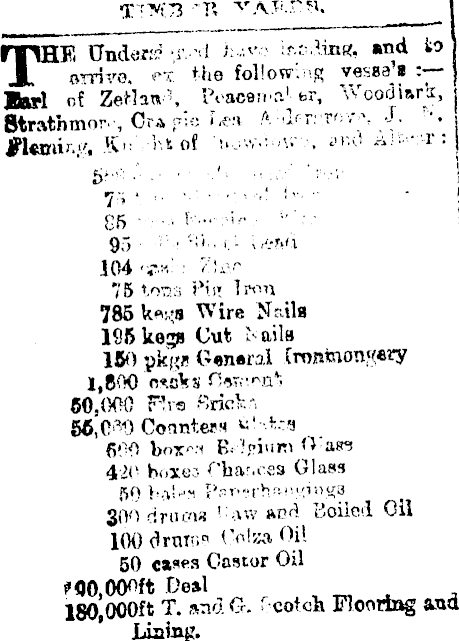 TIMBER YARDS.
THE Undersigned have landing, and to
arrive, ex the following vessels :—
Earl of Zetland, Peacemaker, Woodlark,
Strathmore, Craigie Lea, Aldergrove, J. N.
Fleming, Knight of Snowdown, and Altcar :
Iron
75
85
95 Sheet Lead
104 casks Zinc
75 tons Pig Iron
785 kegs Wire Nails
195 kegs Cut Nails
150 pkgs General Ironmongery
1,800 casks Cement
50,000 Fire Bricks
55,000 Countess Slates
600 boxes Belgium Glass
420 boxes Chances Glass
50 bales Paperhangings
300 drums Raw and Boiled Oil
100 drums Colza Oil
50 cases Castor Oil
90,000ft Deal
180,000ft T. and G. Scotch Flooring and
Lining.